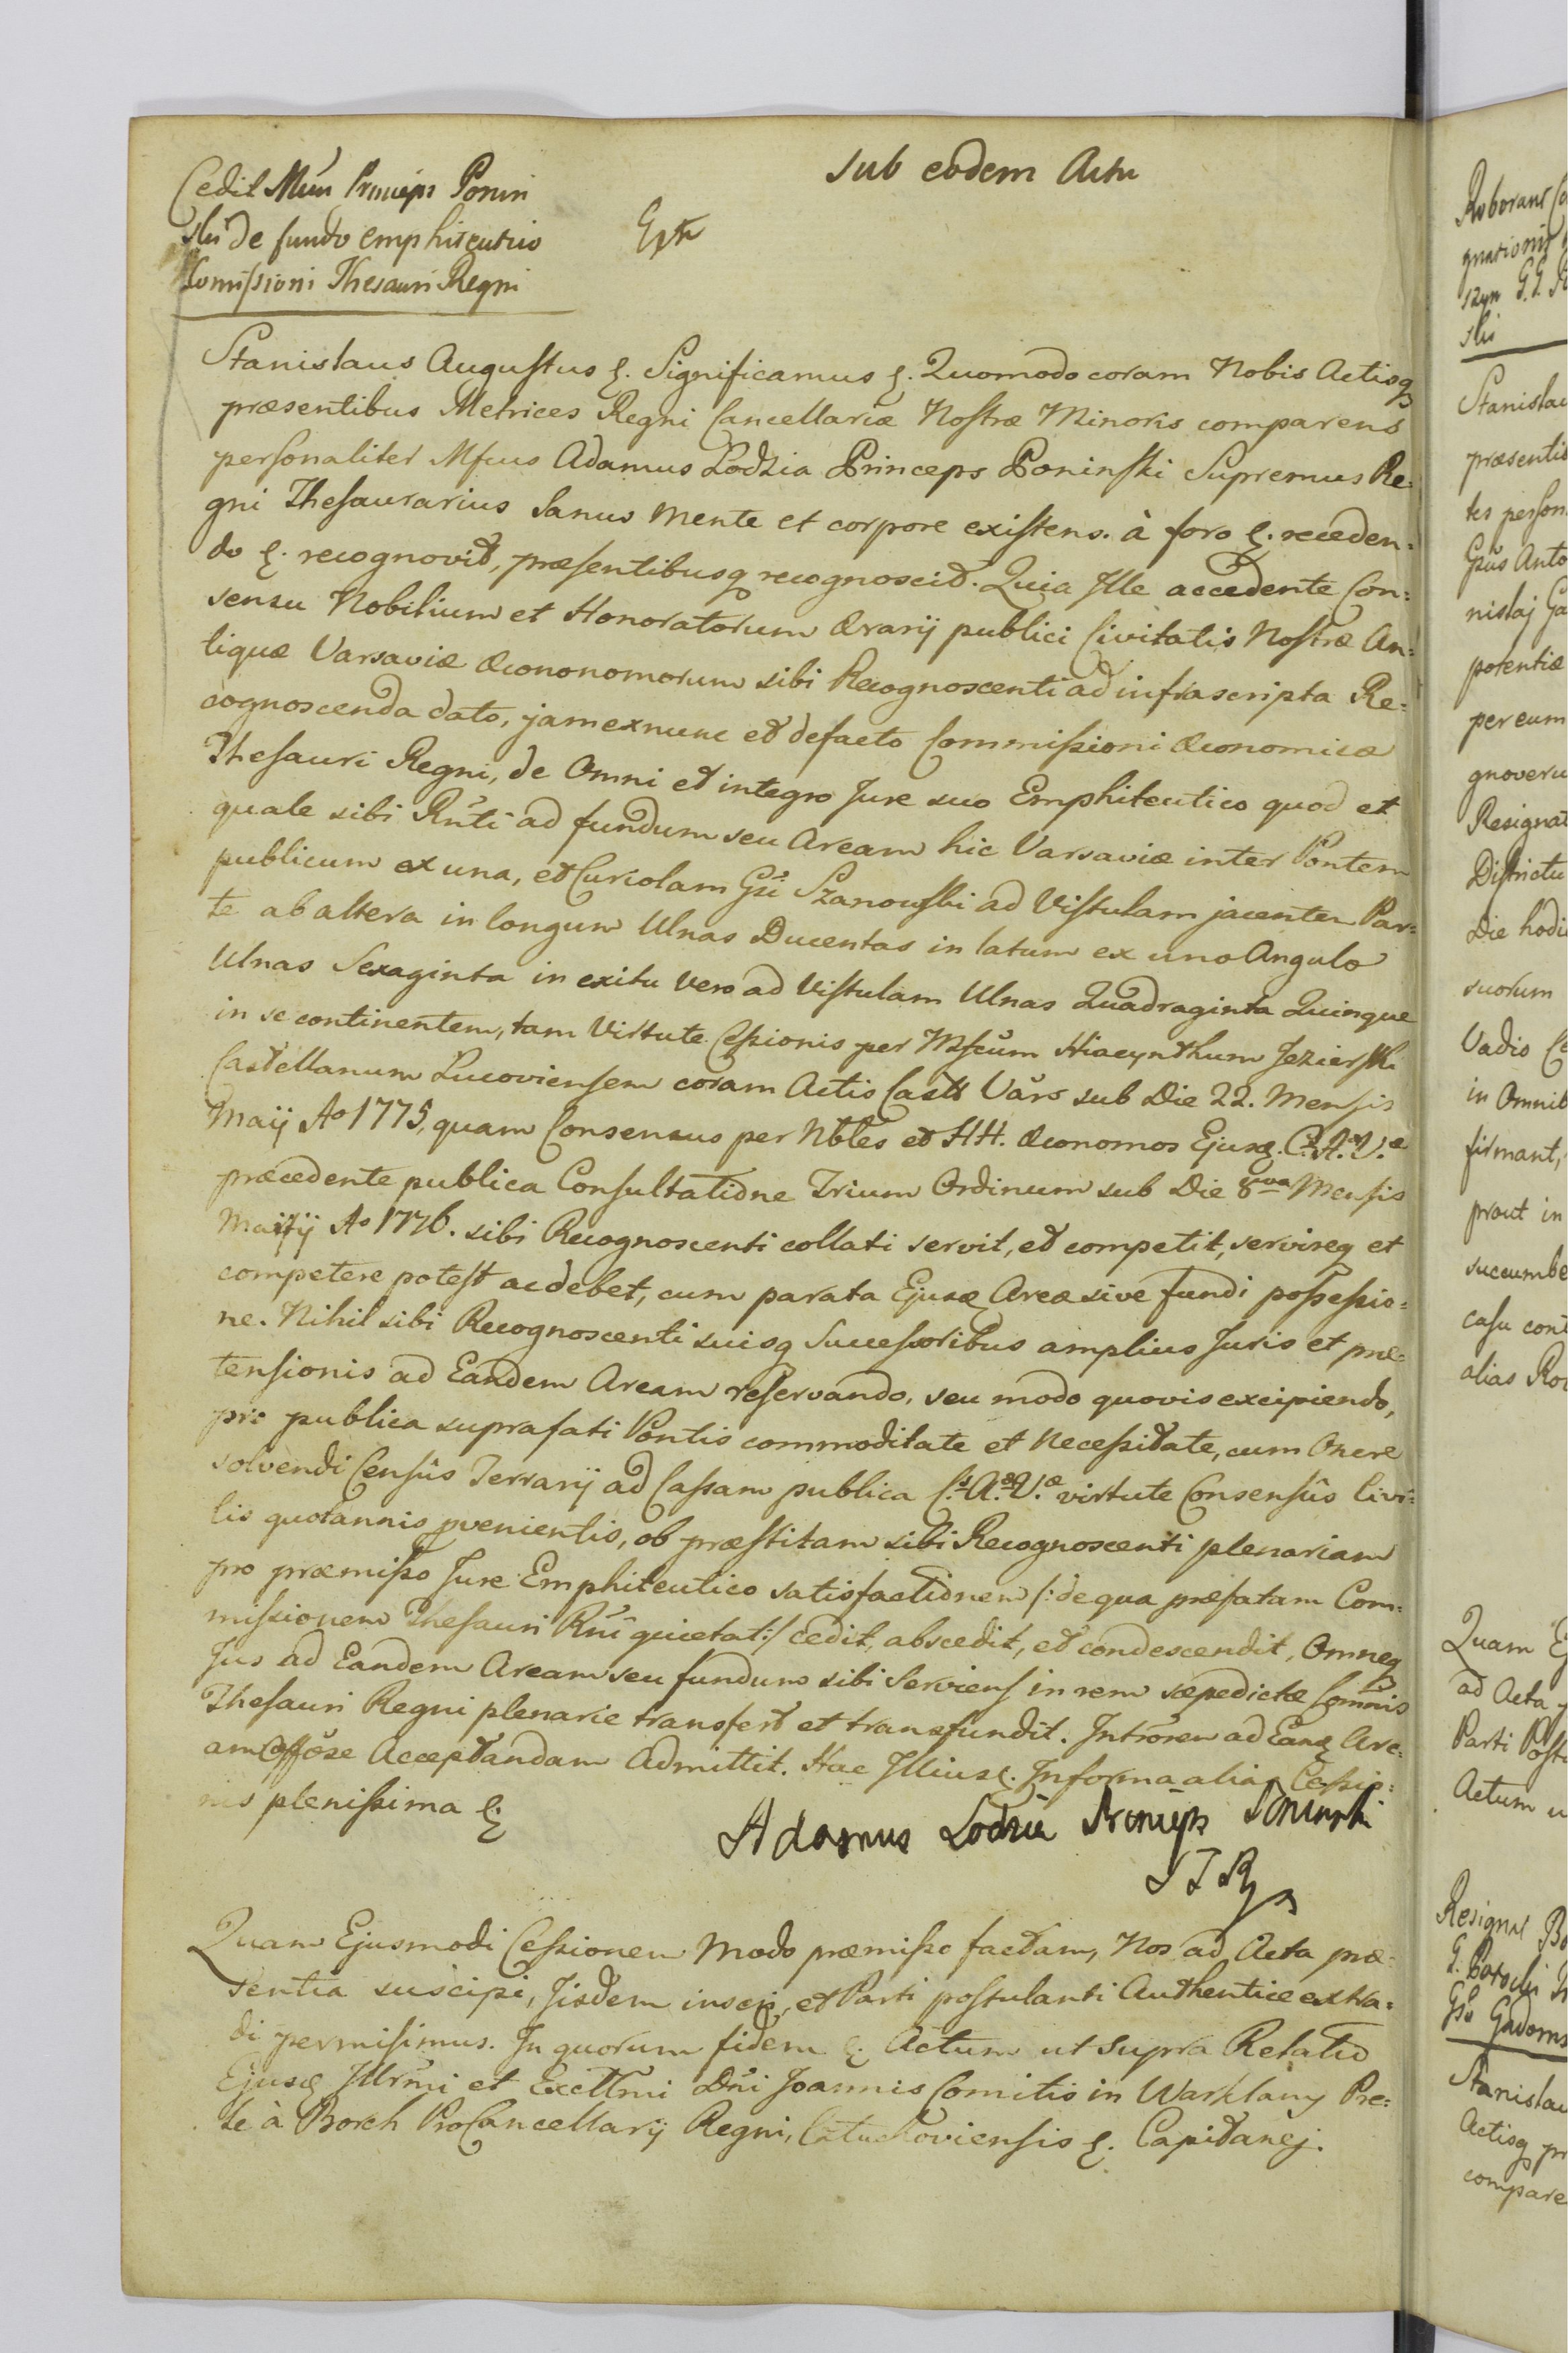 sub eodem Actu
Cedit Mcus Princeps Ponin
ski de fundo emphiteutico
Comissioni Thesauri Regni
Extr
Stanislaus Augustus &. Significamus &. Quomodo coram Nobis Actisq
præsentibus Metrices Regni Cancellariæ Nostræ Minoris comparens
personaliter Mfcus Adamus Lodzia Princeps Poninski Supremus Re=
gni Thesaurarius Sanus Mente et corpore existens. à foro &. receden=
do &. recognovit, præsentibusq recognoscit. Quia Ille accedente Con=
sensu Nobilium et Honoratorum Ærarij publici Civitatis Nostræ An=
tiquæ Varsaviæ Œcononomorum sibi Recognoscenti ad infrascripta Re=
cognoscenda dato, jam exnunc et defacto Commissioni Œconomicæ
Thesauri Regni, de Omni et integro Jure suo Emphiteutico quod et
quale sibi Rnti ad fundum seu Aream hic Varsaviæ inter Pontem
publicum ex una, et Curiolam Gsi Szanowski ad Vistulam jacentem Par=
te ab altera in longum Ulnas Ducentas in latum ex uno Angulo
Ulnas Sexaginta in exitu vero ad Vistulam Ulnas Quadraginta Quinque
in se continentem, tam Virtute Cessionis per Mfcum Hiacynthum Jezierski
Castellanum Lucoviensem coram Actis Castr Vars sub Die 22. Mensis
Maij Ao 1775, quam Consensus per Nbles et HH. Œconomos Ejusq. C.s A.æ V.æ
præcedente publica Consultatione Trium Ordinum sub Die 8va Mensis
Maij Ao 1776. sibi Recognoscenti collati servit, et competit, servireq et
competere potest ac debet, cum parata Ejusq Areæ sive fundi possessio=
ne. Nihil sibi Recognoscenti suisq Successoribus amplius Juris et præ=
tensionis ad Eandem Aream reservando, seu modo quovis excipiendo,
pro publica suprafati Pontis commoditate et Necessitate, cum Onere
solvendi Censûs Terrarij ad Cassam publica C.s A.æ V.æ virtute Consensûs Civi=
lis quotannis pvenientis, ob præstitam sibi Recognoscenti plenariam
pro præmisso Jure Emphiteutico satisfactionem /: de qua præfatam Com=
missionem Thesauri Rni quietat :/ cedit, abscedit, et condescendit, Omneq
Jus ad Eandem Aream seu fundum sibi Serviens in rem sæpedictæ Comnis
Thesauri Regni plenarie transfert et transfundit. Intronem ad Eanq Are=
am Offose Acceptandam Admittit. Hac Illiusq. In forma alias Cessio=
nis plenissima &
Adamus Lodzia Princeps Poninski
STR
Quam Ejusmodi Cessionem Modo præmisso factam, Nos ad Acta præ=
sentia suscipi, Iisdem inscri, et Parti postulanti Authentice extra=
di permisimus. In quorum fidem &. Actum ut supra Relatio
Ejusq Illrmi et Excellmi Dni Joannis Comitis in Warklany Pre=
le à Borch ProCancellarij Regni, &. Capitanej.
Stanislau
præsentib
tes person
Gsus Anto
nislaj Ga
potentiæ
per eum
gnoveru
Resignat
Districtu
Die hodie
suorum
Vadio
in Omnib
firmant,
prout in
succumbe
casu cont
alias Ro
Quam Ej
ad Acta
Parti Post
Actum u
Resignat Bo
Stanislau
Actisq pr
compare